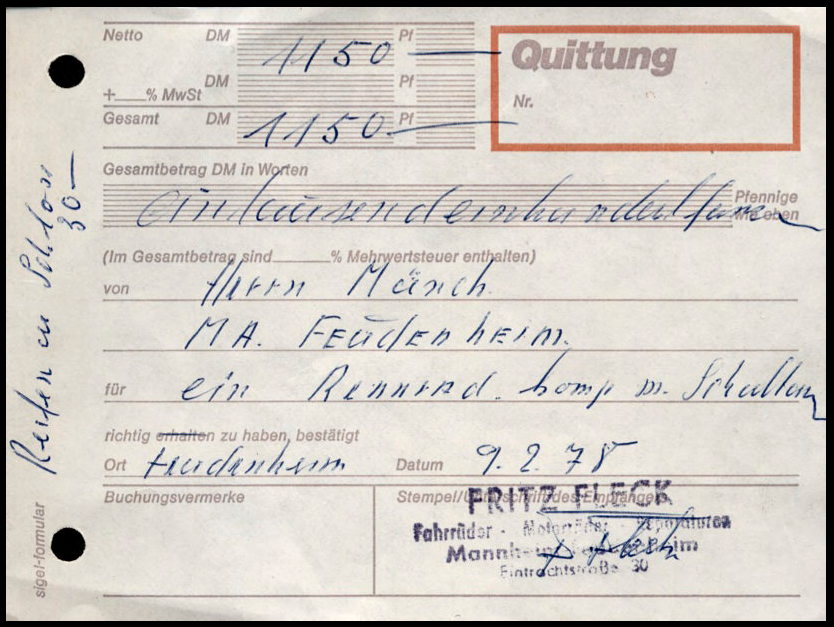 Netto DM 1150 Pf —
Quittung
+ % MwSt DM Pf
Nr.
Gesamt DM 1150 Pf —
Gesamtbetrag DM in Worten
eintausendeinhundertfünf
Pfennige
wie oben
(Im Gesamtbetrag sind % Mehrwertsteuer enthalten)
von Herrn Münch
MA. Feudenheim.
für ein Rennrad. komp m.
richtig erhalten zu haben, bestätigt
Ort Feudenheim Datum 9.2.78
Buchungsvermerke
Stempel/Unterschrift des Empfängers
FRITZ FLECK
Fahrräder - Motorräder - Reparaturen
Mannheim-Feudenheim
Eintrachtstraße 30
Reifen u Schloss
30—
sigel-formular